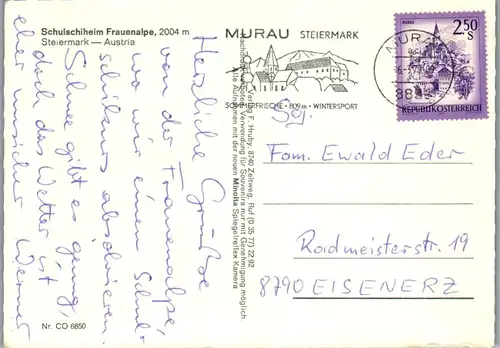 Schulschiheim Frauenalpe, 2004 m
Steiermark — Austria
Herzliche Grüße
von der Frauenalpe,
wo wir einen Schul-
schikurs absolvieren.
Schnee gibt es genug,
doch das Wetter ist
eher unsicher Werner
Nr. CO 6850
Verlag F. Hruby, 8740 Zeltweg, Ruf (0 35 77) 22 92
Verwendung für Souvenirs nur mit Genehmigung möglich.
Aufnahmen mit der neuen Minolta Spiegelreflex Kamera
MURAU STEIERMARK
SOMMERFRISCHE · 809 m · WINTERSPORT
MURAU
MURAU
2.50
S
REPUBLIK ÖSTERREICH
Fam. Ewald Eder
Radmeisterstr. 19
8790 EISENERZ